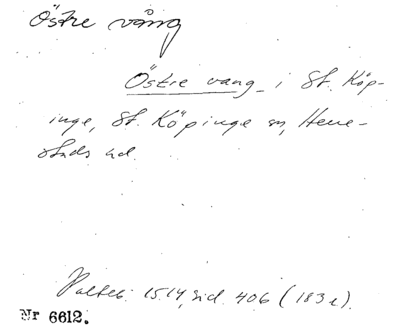 Östre vång
Östre vang i St. Köp-
inge, St. Köpinge sn, Herre-
stads hd.
Palteb. 1514, sid. 406 (183 r).
Nr 6612.